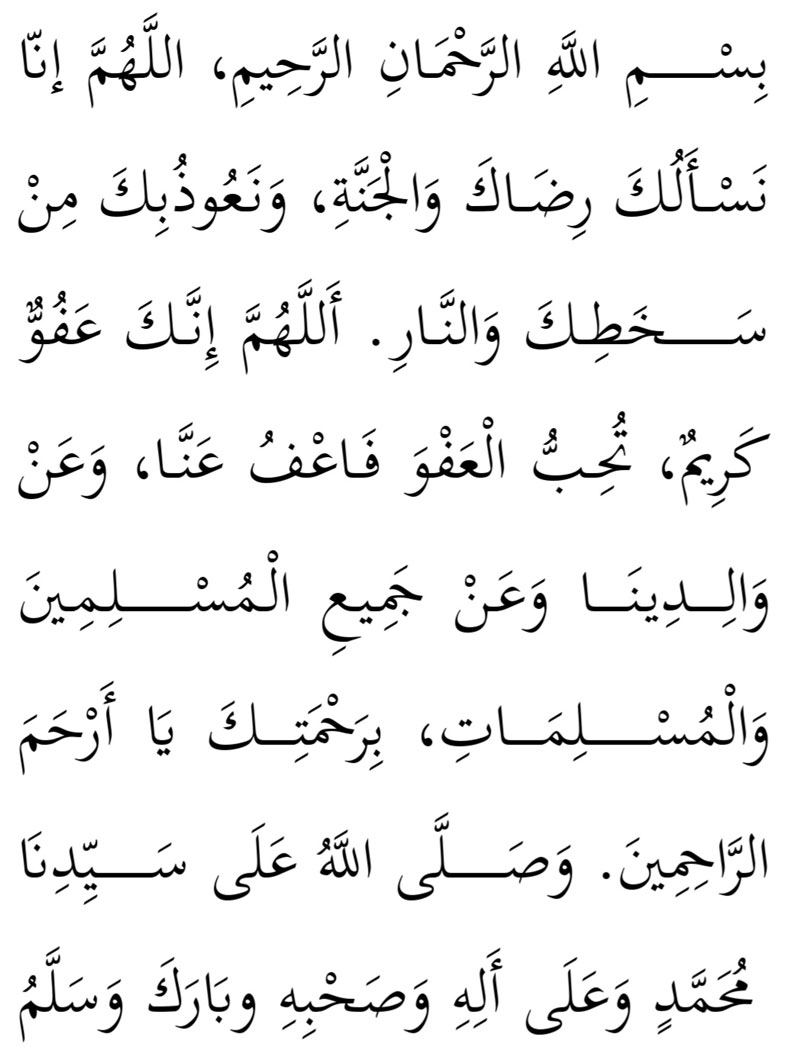 بِسْمِ اللَّهِ الرَّحْمَانِ الرَّحِيمِ، اللَّهُمَّ إنّا
نَسْأَلُكَ رِضَاكَ وَالْجَنَّةِ، وَنَعُوذُبِكَ مِنْ
سَخَطِكَ وَالنَّارِ. أَللَّهُمَّ إِنَّكَ عَفُوٌّ
كَرِيمٌ، تُحِبُّ الْعَفْوَ فَاعْفُ عَنَّا، وَعَنْ
وَالِدِينَا وَعَنْ جَمِيعِ الْمُسْلِمِينَ
وَالْمُسْلِمَاتِ، بِرَحْمَتِكَ يَا أَرْحَمَ
الرَّاحِمِينَ. وَصَلَّى اللَّهُ عَلَى سَيِّدِنَا
مُحَمَّدٍ وَعَلَى أَلِهِ وَصَحْبِهِ وبَارَكَ وَسَلَّمُ